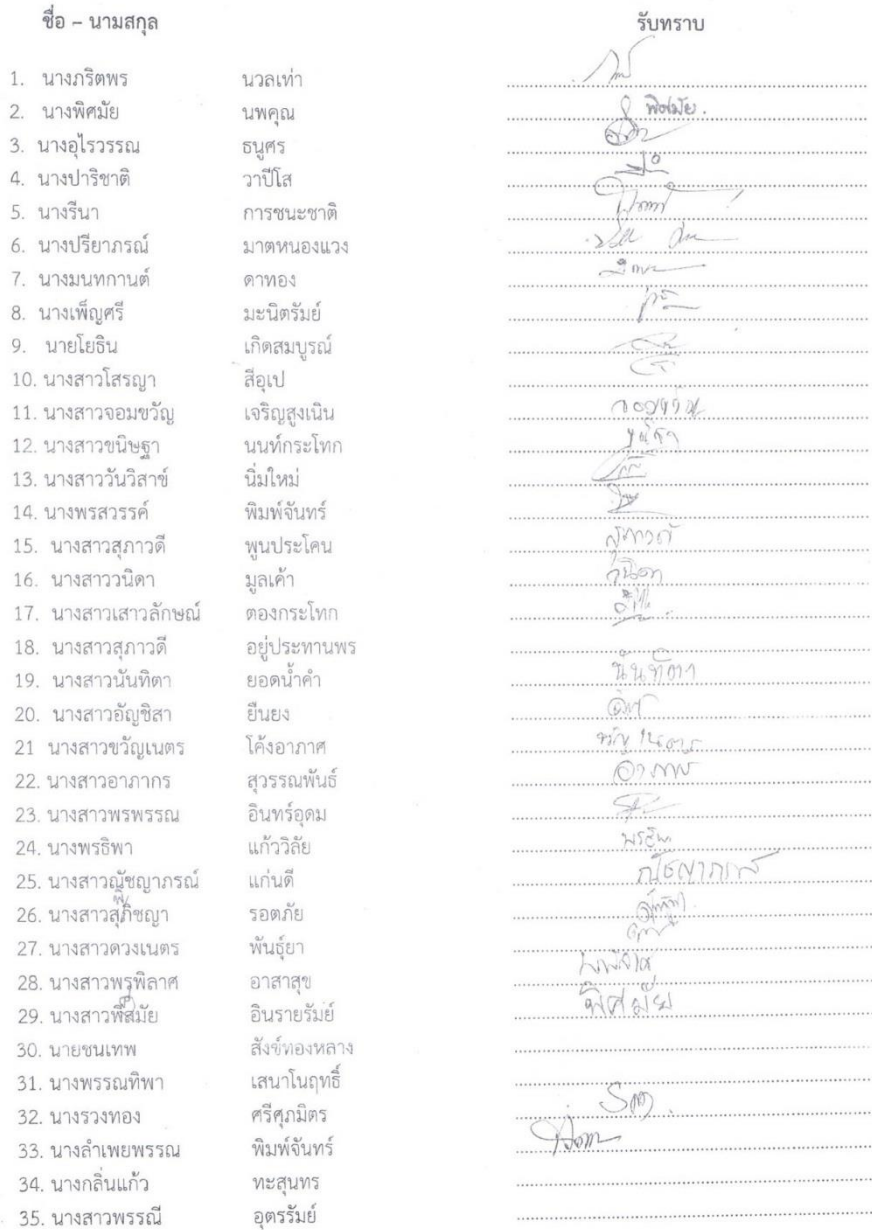 ชื่อ – นามสกุล รับทราบ
1. นางภริตพร นวลเท่า
2. นางพิศมัย นพคุณ พิศมัย.
3. นางอุไรวรรณ ธนูศร
4. นางปาริชาติ วาปีโส
5. นางรีนา การชนะชาติ
6. นางปรียาภรณ์ มาตหนองแวง
7. นางมนทกานต์ ดาทอง
8. นางเพ็ญศรี มะนิตรัมย์
9. นายโยธิน เกิดสมบูรณ์
10. นางสาวโสรญา สีอุเป
11. นางสาวจอมขวัญ เจริญสูงเนิน จอมขวัญ
12. นางสาวขนิษฐา นนท์กระโทก
13. นางสาววันวิสาข์ นิ่มใหม่
14. นางพรสวรรค์ พิมพ์จันทร์
15. นางสาวสุภาวดี พูนประโคน สุภาวดี
16. นางสาววนิดา มูลเค้า วนิดา
17. นางสาวเสาวลักษณ์ ตองกระโทก
18. นางสาวสุภาวดี อยู่ประทานพร
19. นางสาวนันทิตา ยอดน้ำคำ นันทิตา
20. นางสาวอัญชิสา ยืนยง
21 นางสาวขวัญเนตร โค้งอาภาศ ขวัญเนตร
22. นางสาวอาภากร สุวรรณพันธ์ อาภากร
23. นางสาวพรพรรณ อินทร์อุดม
24. นางพรธิพา แก้ววิลัย พรธิพา
25. นางสาวณัชญาภรณ์ แก่นดี ณัชญาภรณ์
26. นางสาวสุภิชญา รอตภัย
27. นางสาวดวงเนตร พันธุ์ยา
28. นางสาวพรพิลาศ อาสาสุข
29. นางสาวพิสมัย อินรายรัมย์ พิศมัย
30. นายชนเทพ สังข์ทองหลาง
31. นางพรรณทิพา เสนาโนฤทธิ์
32. นางรวงทอง ศรีศุภมิตร
33. นางลำเพยพรรณ พิมพ์จันทร์
34. นางกลิ่นแก้ว ทะสุนทร
35. นางสาวพรรณี อุตรรัมย์